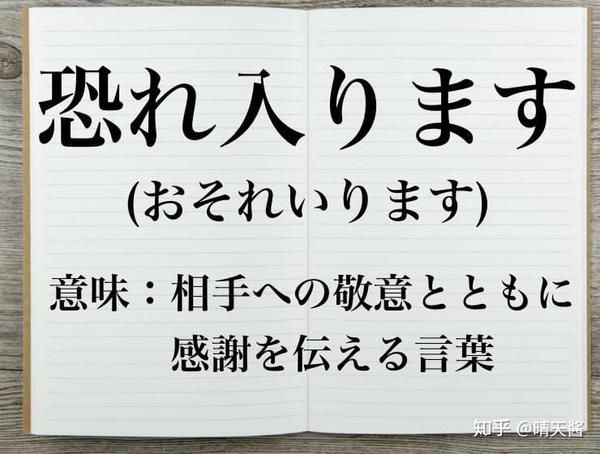 恐れ入ります
(おそれいります)
意味：相手への敬意とともに
感謝を伝える言葉
知乎 @晴天酱